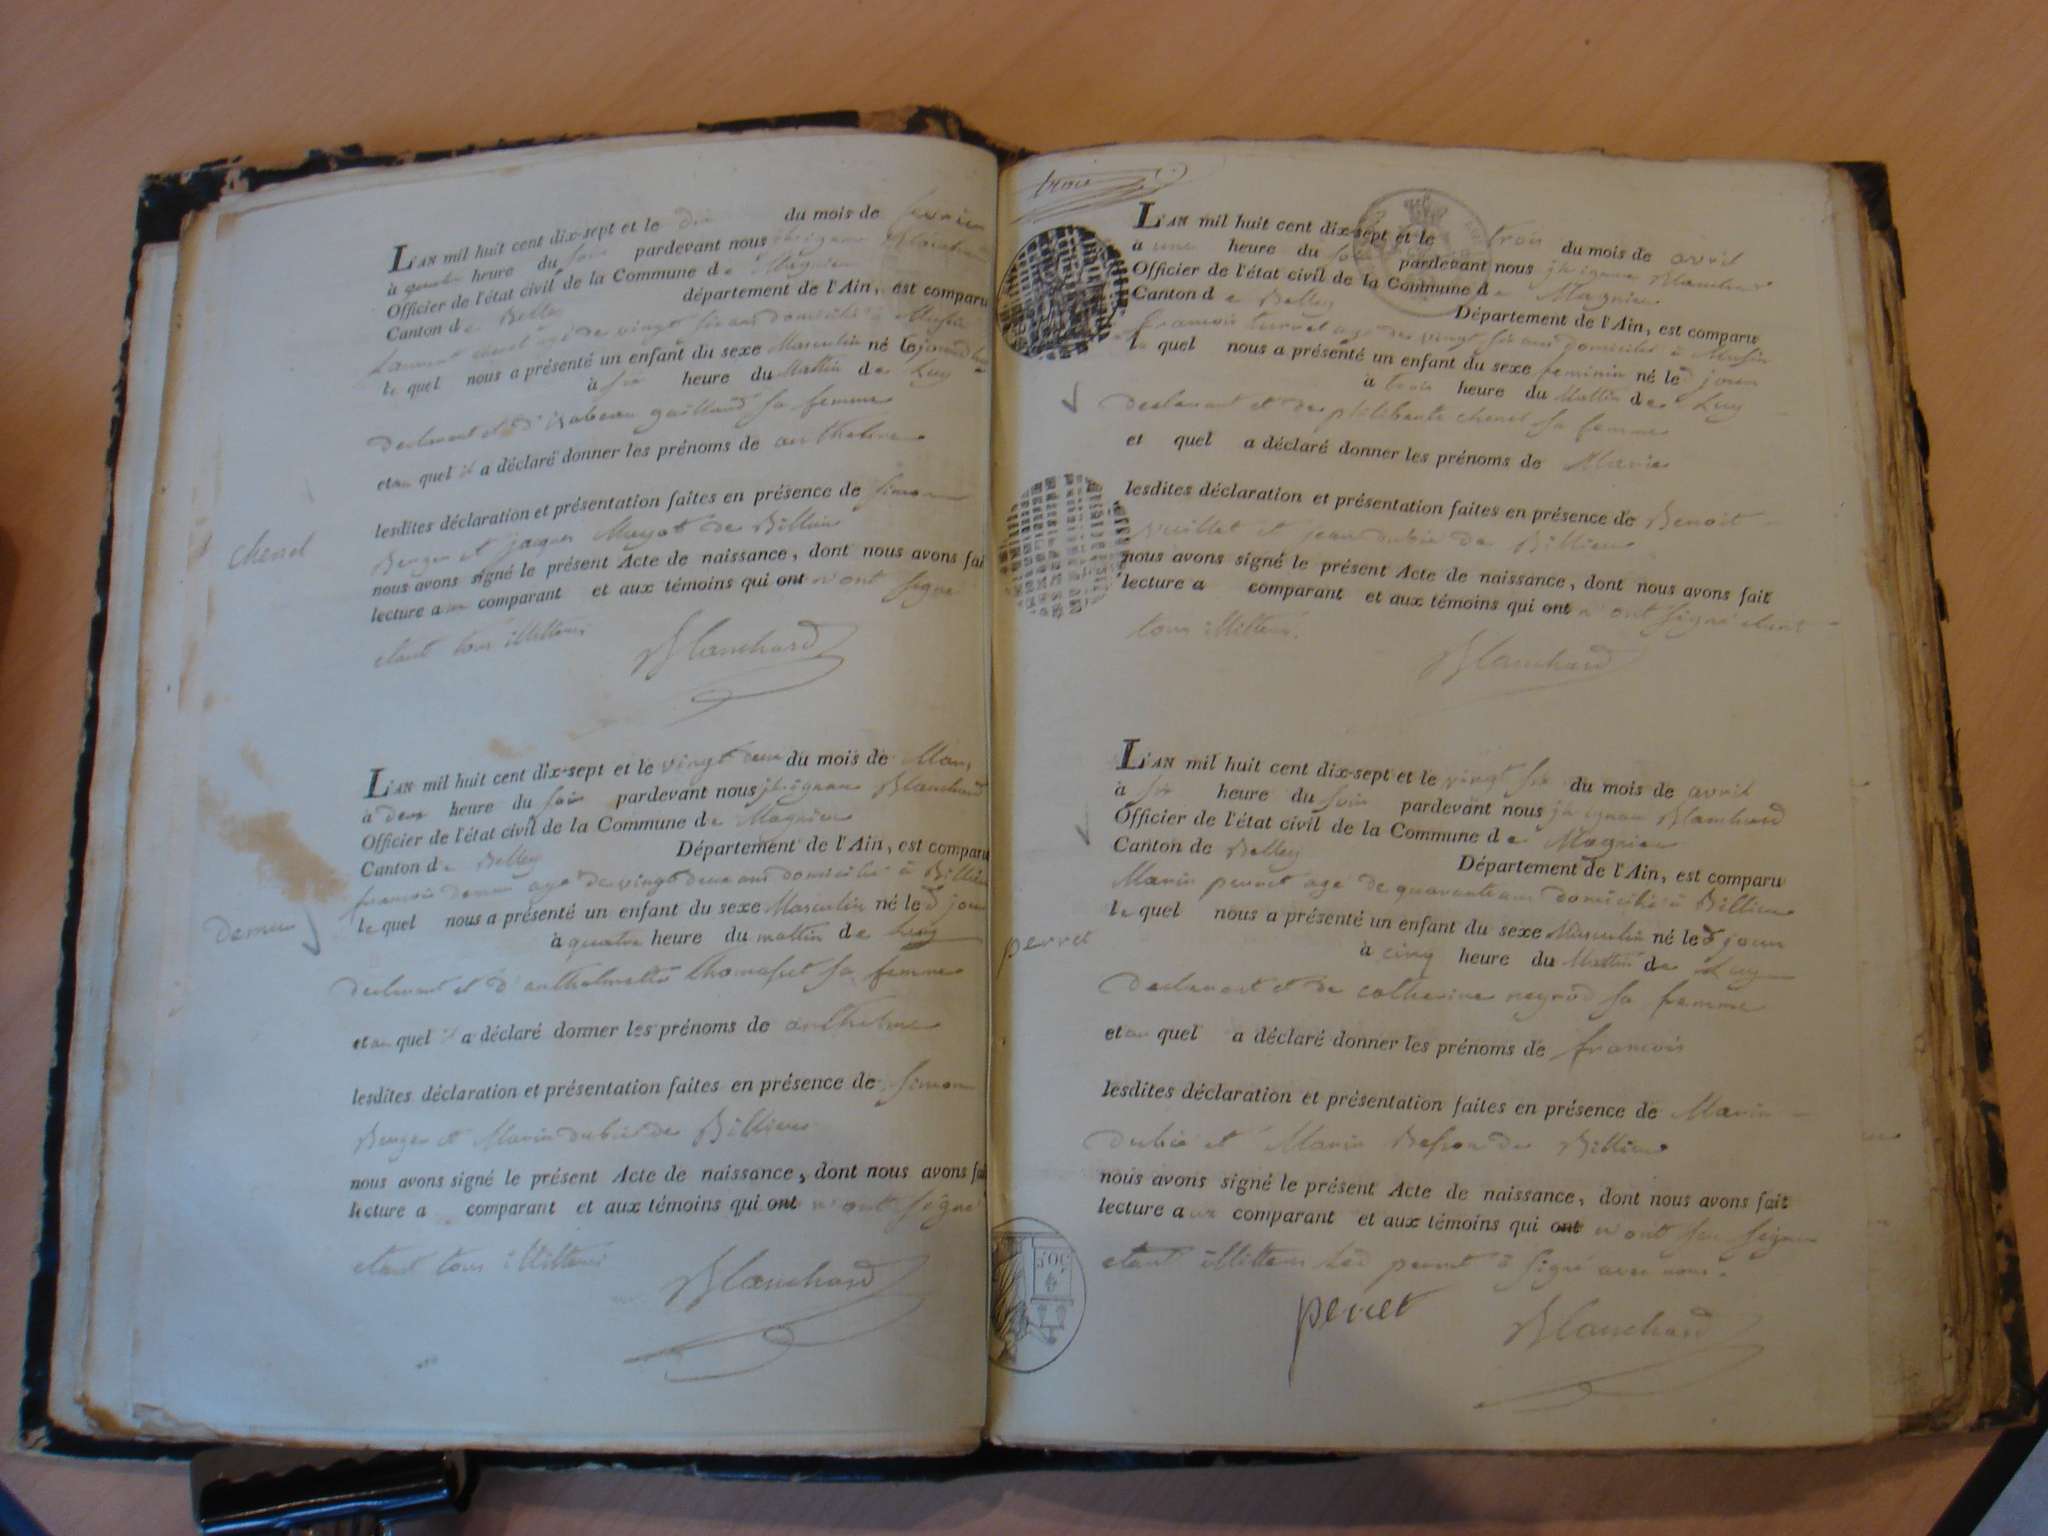 L'AN mil huit cent dix-sept et le dix du mois de fevrier
à quatre heure du soir pardevant nous jh ignace Blanchard
Officier de l'état civil de la Commune de Magnieu
Canton de Belley département de l'Ain, est comparu
chenel agé de vingt six ans domicilié à Musin
le quel nous a présenté un enfant du sexe Masculin né le
à six heure du Mattin de Luy
declarant et d'isabeau gaillard sa femme
et au quel il a déclaré donner les prénoms de anthelme
lesdites déclaration et présentation faites en présence de simon
Berger et jacques de Billieu
nous avons signé le présent Acte de naissance, dont nous avons fai
lecture au comparant et aux témoins qui ont n'ont signé
etant tous illitteré
Blanchard
chenel
L'AN mil huit cent dix-sept et le vingt deux du mois de Mars
à deux heure du soir pardevant nous jh ignace Blanchard
Officier de l'état civil de la Commune de Magnieu
Canton de Belley Département de l'Ain, est comparu
francois agé de vingt deux ans domicilié à Billieu
le quel nous a présenté un enfant du sexe Masculin né le d jour
à quatre heure du mattin de Luy
declarant et d'anthelmette thomasset sa femme
et au quel il a déclaré donner les prénoms de anthelme
lesdites déclaration et présentation faites en présence de simon
Berger et Marin dubié de Billieu
nous avons signé le présent Acte de naissance, dont nous avons fai
lecture a comparant et aux témoins qui ont n'ont signé
etant tous illitteré
Blanchard
trois
L'AN mil huit cent dix-sept et le trois du mois de avril
à une heure du soir pardevant nous jh ignace Blanchard
Officier de l'état civil de la Commune de Magnieu
Canton de Belley Département de l'Ain, est comparu
francois turret agé de vingt six ans domicilié à Musin
le quel nous a présenté un enfant du sexe feminin né le d jour
à trois heure du Mattin de Luy
declarant et de philiberte chenel sa femme
et quel a déclaré donner les prénoms de Marie
lesdites déclaration et présentation faites en présence de Benoit
vuillet et jean dubié de Billieu
nous avons signé le présent Acte de naissance, dont nous avons fait
lecture a comparant et aux témoins qui ont n'ont signé etant
tous illitteré.
Blanchard
L'AN mil huit cent dix-sept et le vingt six du mois de avril
à six heure du soir pardevant nous jh ignace Blanchard
Officier de l'état civil de la Commune de Magnieu
Canton de Belley Département de l'Ain, est comparu
Marin perret agé de quarante ans domicilié à Billieu
le quel nous a présenté un enfant du sexe Masculin né le d jour
à cinq heure du Mattin de Luy
perret
declarant et de catherine neyrod sa femme
et au quel a déclaré donner les prénoms de francois
lesdites déclaration et présentation faites en présence de Marin
dubié et Marin Besson de Billieu
nous avons signé le présent Acte de naissance, dont nous avons fait
lecture au comparant et aux témoins qui ont n'ont sçu signer
etant illitteré led perret à signé avec nous.
perret Blanchard